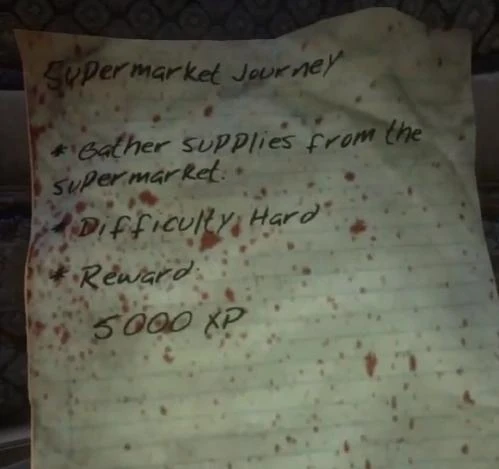 Supermarket Journey
* Gather supplies from the
supermarket.
* Difficulty Hard
* Reward
5000 XP